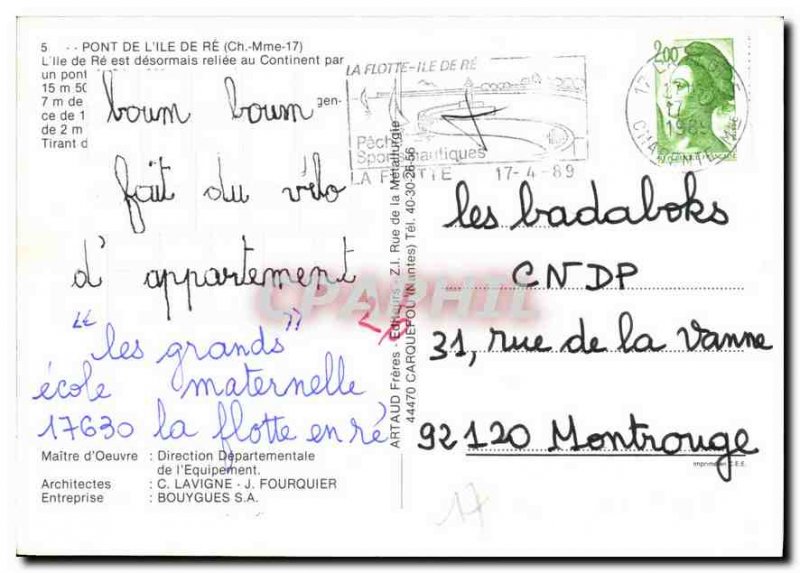 5 - - PONT DE L'ILE DE RÉ (Ch.-Mme-17)
L'Ile de Ré est désormais reliée au Continent par
un pont
15 m 50
7 m de gen-
ce de 1
de 2 m
Tirant d
boum boum
fait du vélo
d'appartement
"les grands"
école maternelle
17630 la flotte en ré
Maître d'Oeuvre : Direction Départementale
de l'Equipement.
Architectes : C. LAVIGNE - J. FOURQUIER
Entreprise : BOUYGUES S.A.
LA FLOTTE-ILE DE RÉ
Pêche
Sports nautiques
LA FLOTTE 17-4-89
2,00
1989
ARTAUD Frères - Editeurs - Z.I. Rue de la Métallurgie
44470 CARQUEFOU (Nantes) Tél. 40-30-26-56
CPAPHIL
les badaboks
CNDP
31, rue de la Vanne
92120 Montrouge
imprimé en C.E.E.
17